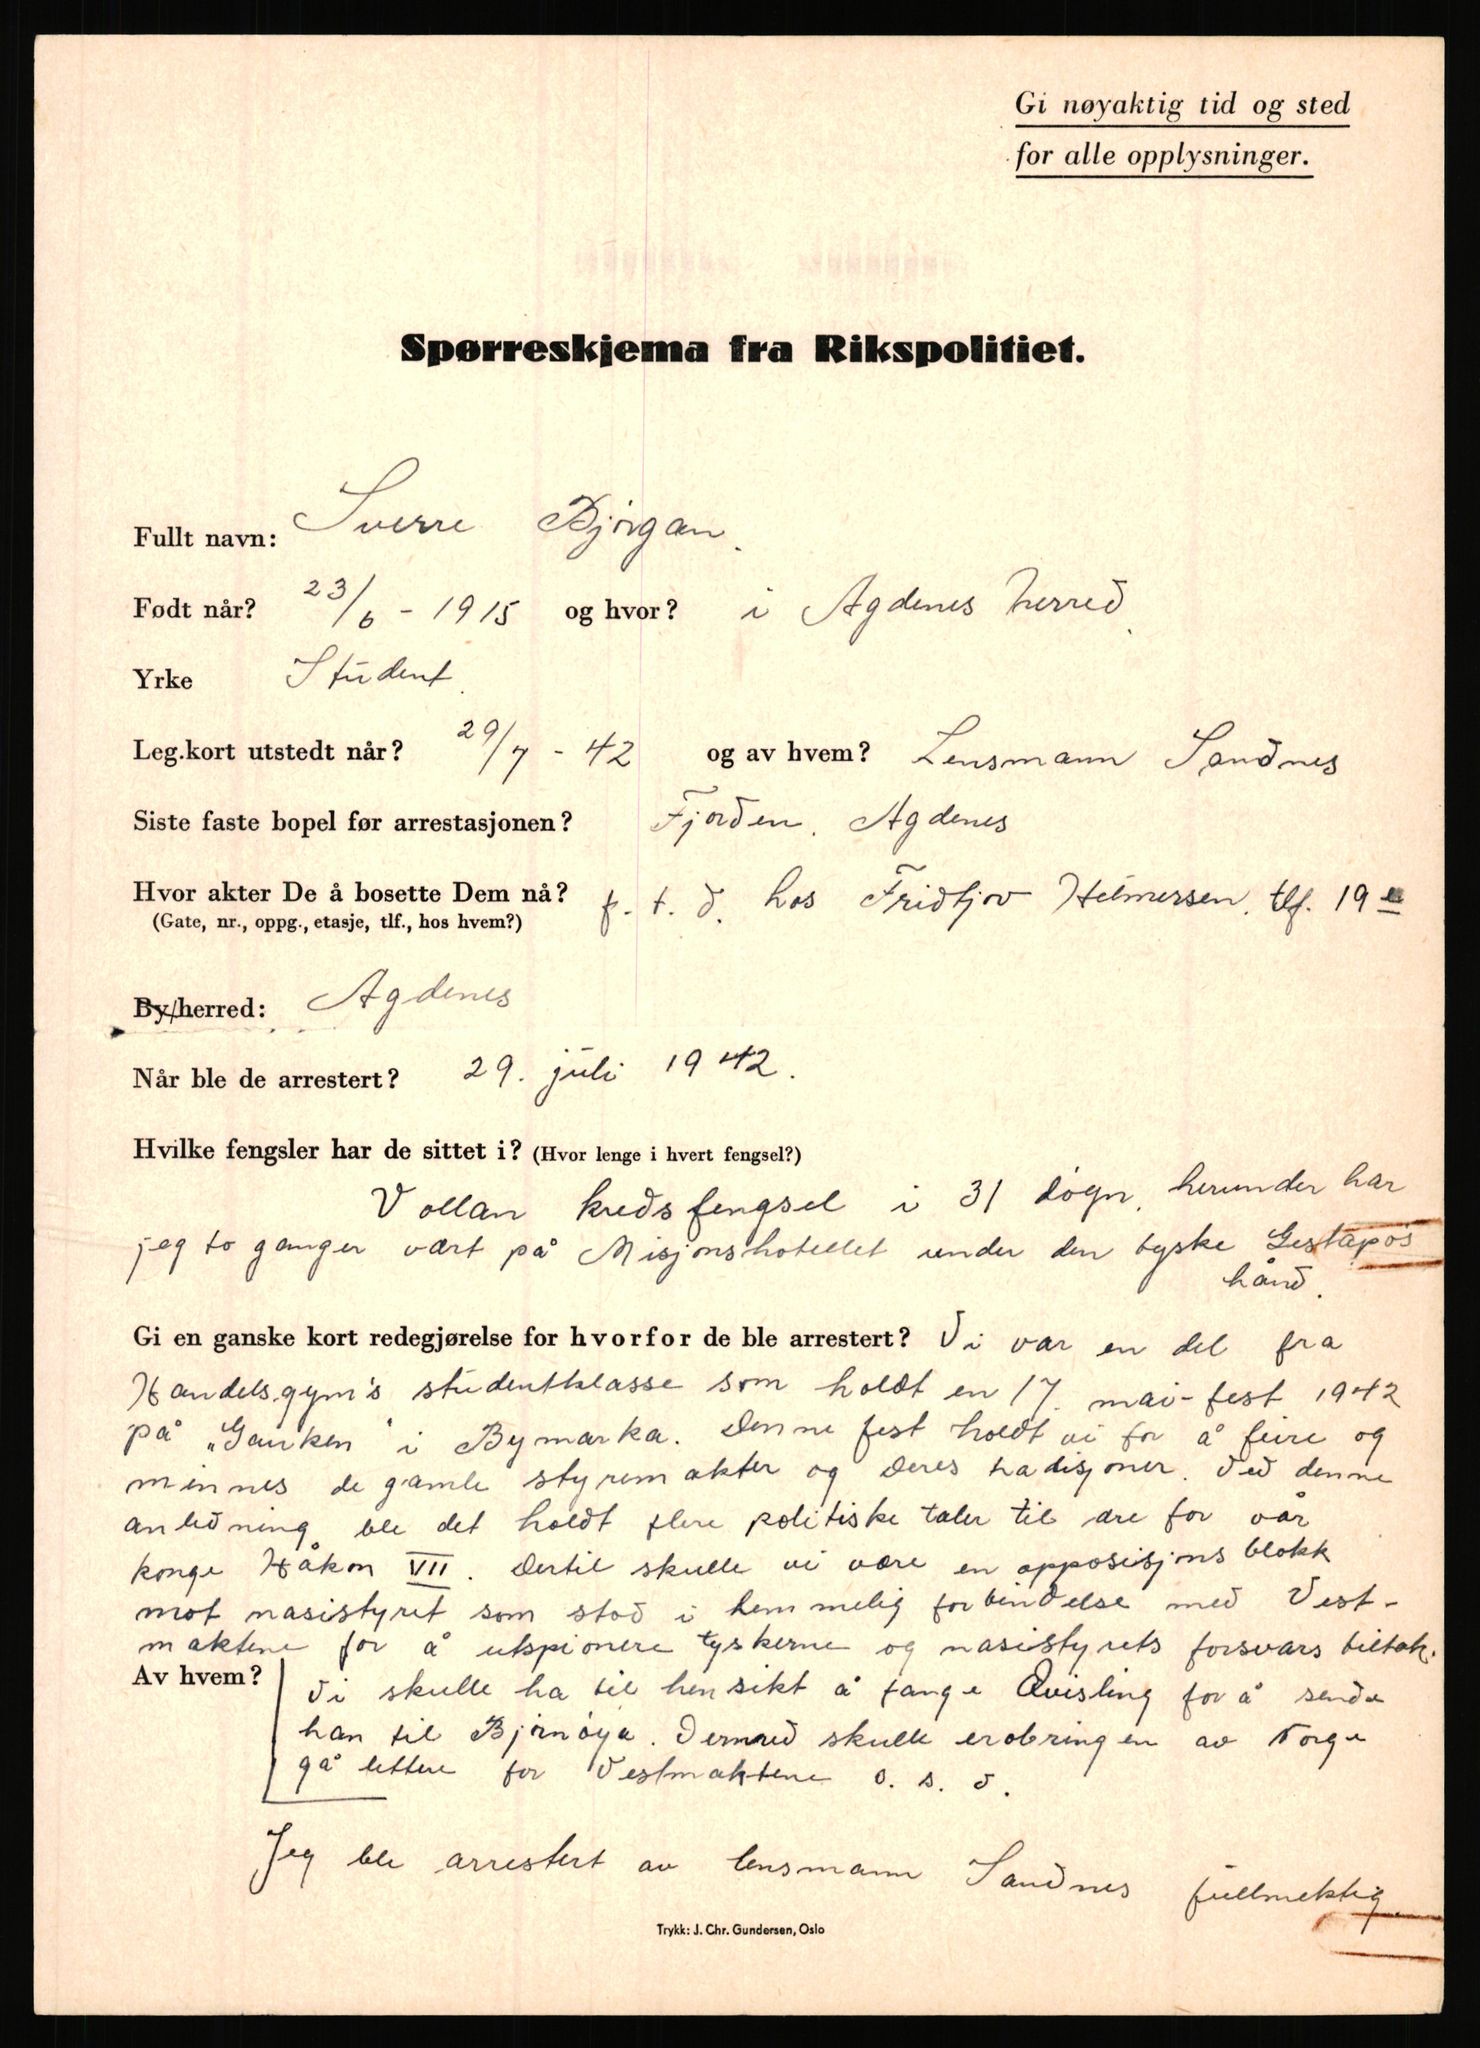 Gi nøyaktig tid og sted
for alle opplysninger.
Spørreskjema fra Rikspolitiet.
Fullt navn: Sverre Bjørgan.
Født når? 23/6 - 1915 og hvor? i Agdenes herred.
Yrke Student.
Leg.kort utstedt når? 29/7 - 42 og av hvem? Lensmann Sandnes
Siste faste bopel før arrestasjonen? Fjorden, Agdenes
Hvor akter De å bosette Dem nå? f. t. d. hos Fridtjov Hilmersen, tlf. 19
(Gate, nr., oppg., etasje, tlf., hos hvem?)
By/herred: Agdenes
Når ble de arrestert? 29. juli 1942.
Hvilke fengsler har de sittet i? (Hvor lenge i hvert fengsel?)
Vollan kredsfengsel i 31 døgn, herunder har
jeg to ganger vært på Misjonshotellet under den tyske Gestapos
hånd.
Gi en ganske kort redegjørelse for hvorfor de ble arrestert? Vi var en del fra
Handelsgym's studentklasse som holdt en 17. mai-fest 1942
på „Gauken" i Bymarka. Denne fest holdt vi for å feire og
minnes de gamle styremakter og deres tradisjoner. Ved denne
anledning ble det holdt flere politiske taler til ære for vår
konge Håkon VII. Dertil skulle vi være en opposisjonsblokk
mot nasistyret som stod i hemmelig forbindelse med Vest-
maktene for å utspionere tyskerne og nasistyrets forsvars tiltak.
Av hvem? Vi skulle ha til hensikt å fange Qvisling for å sende
han til Bjørnøya. Dermed skulle erobringen av Norge
gå lettere for Vestmaktene o. s. v.
Jeg ble arrestert av lensmann Sandnes fullmektig.
Trykk: J. Chr. Gundersen, Oslo